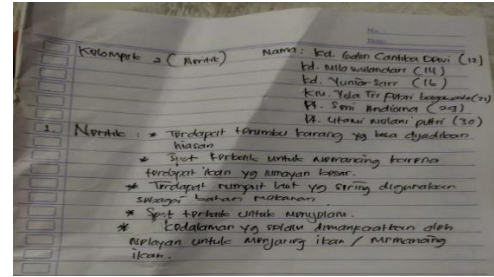 No :
Date :
Kelompok 2 ( Neritik)
Nama : Kd. Galin Cantika Dewi (12)
Kd. Nila wulandari (14)
Kd. Yuniar Sari (16)
Km. Yela Tri Putri (21)
Pt. Seni Andiana (29)
Pt. Utami Wulani putri (30)
1. Neritik : * Terdapat terumbu karang yg bisa dijadikan
hiasan
* Spot terbaik untuk memancing karena
terdapat ikan yg lumayan besar.
* Terdapat rumput laut yg sering digunakan
sebagai bahan makanan.
* Spot terbaik untuk menyelam.
* Kedalaman yg selalu dimanfaatkan oleh
nelayan untuk menjaring ikan / memancing
ikan.